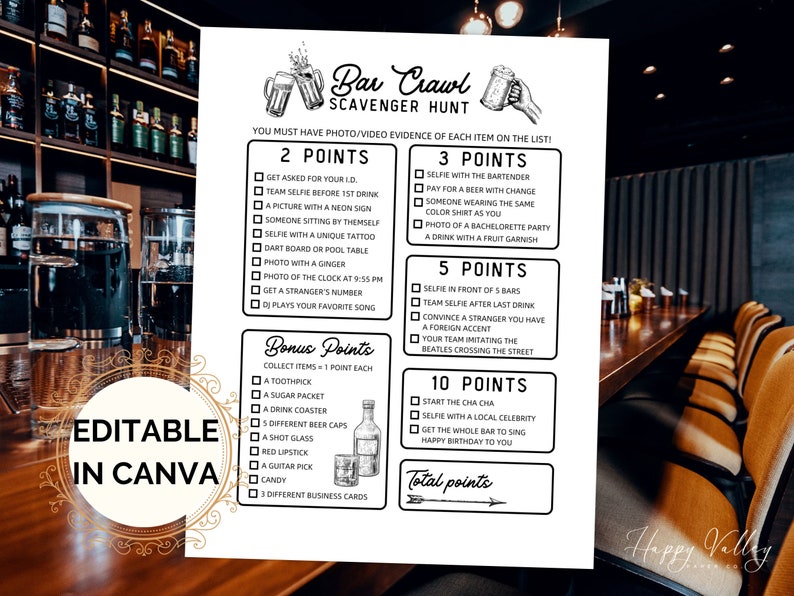 Bar Crawl
SCAVENGER HUNT
YOU MUST HAVE PHOTO/VIDEO EVIDENCE OF EACH ITEM ON THE LIST!
2 POINTS
GET ASKED FOR YOUR I.D.
TEAM SELFIE BEFORE 1ST DRINK
A PICTURE WITH A NEON SIGN
SOMEONE SITTING BY THEMSELF
SELFIE WITH A UNIQUE TATTOO
DART BOARD OR POOL TABLE
PHOTO WITH A GINGER
PHOTO OF THE CLOCK AT 9:55 PM
GET A STRANGER'S NUMBER
DJ PLAYS YOUR FAVORITE SONG
3 POINTS
SELFIE WITH THE BARTENDER
PAY FOR A BEER WITH CHANGE
SOMEONE WEARING THE SAME
COLOR SHIRT AS YOU
PHOTO OF A BACHELORETTE PARTY
A DRINK WITH A FRUIT GARNISH
5 POINTS
SELFIE IN FRONT OF 5 BARS
TEAM SELFIE AFTER LAST DRINK
CONVINCE A STRANGER YOU HAVE
A FOREIGN ACCENT
YOUR TEAM IMITATING THE
BEATLES CROSSING THE STREET
Bonus Points
COLLECT ITEMS = 1 POINT EACH
A TOOTHPICK
A SUGAR PACKET
A DRINK COASTER
5 DIFFERENT BEER CAPS
A SHOT GLASS
RED LIPSTICK
A GUITAR PICK
CANDY
3 DIFFERENT BUSINESS CARDS
10 POINTS
START THE CHA CHA
SELFIE WITH A LOCAL CELEBRITY
GET THE WHOLE BAR TO SING
HAPPY BIRTHDAY TO YOU
Total points
EDITABLE
IN CANVA
Happy Valley
PAPER CO.